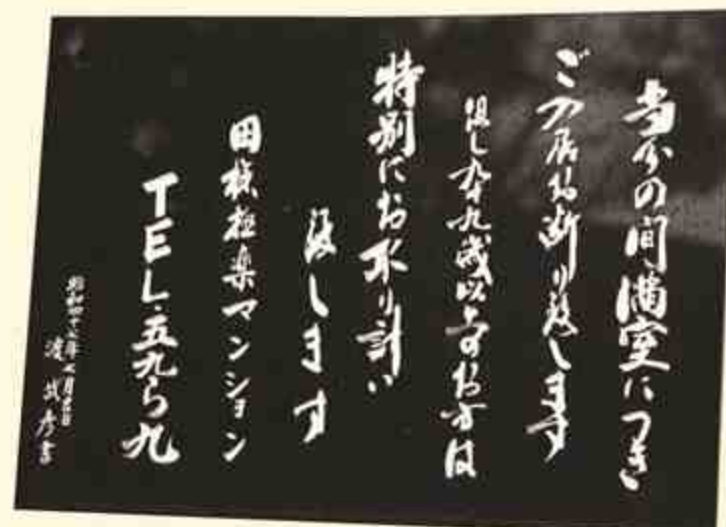 当分の間満室につき
ご入居お断り致します
但し九十九歳以上のお方は
特別にお取り計い
致します
田極楽マンション
TEL・五九ら九
昭和四十年七月吉日
渡 武彦書